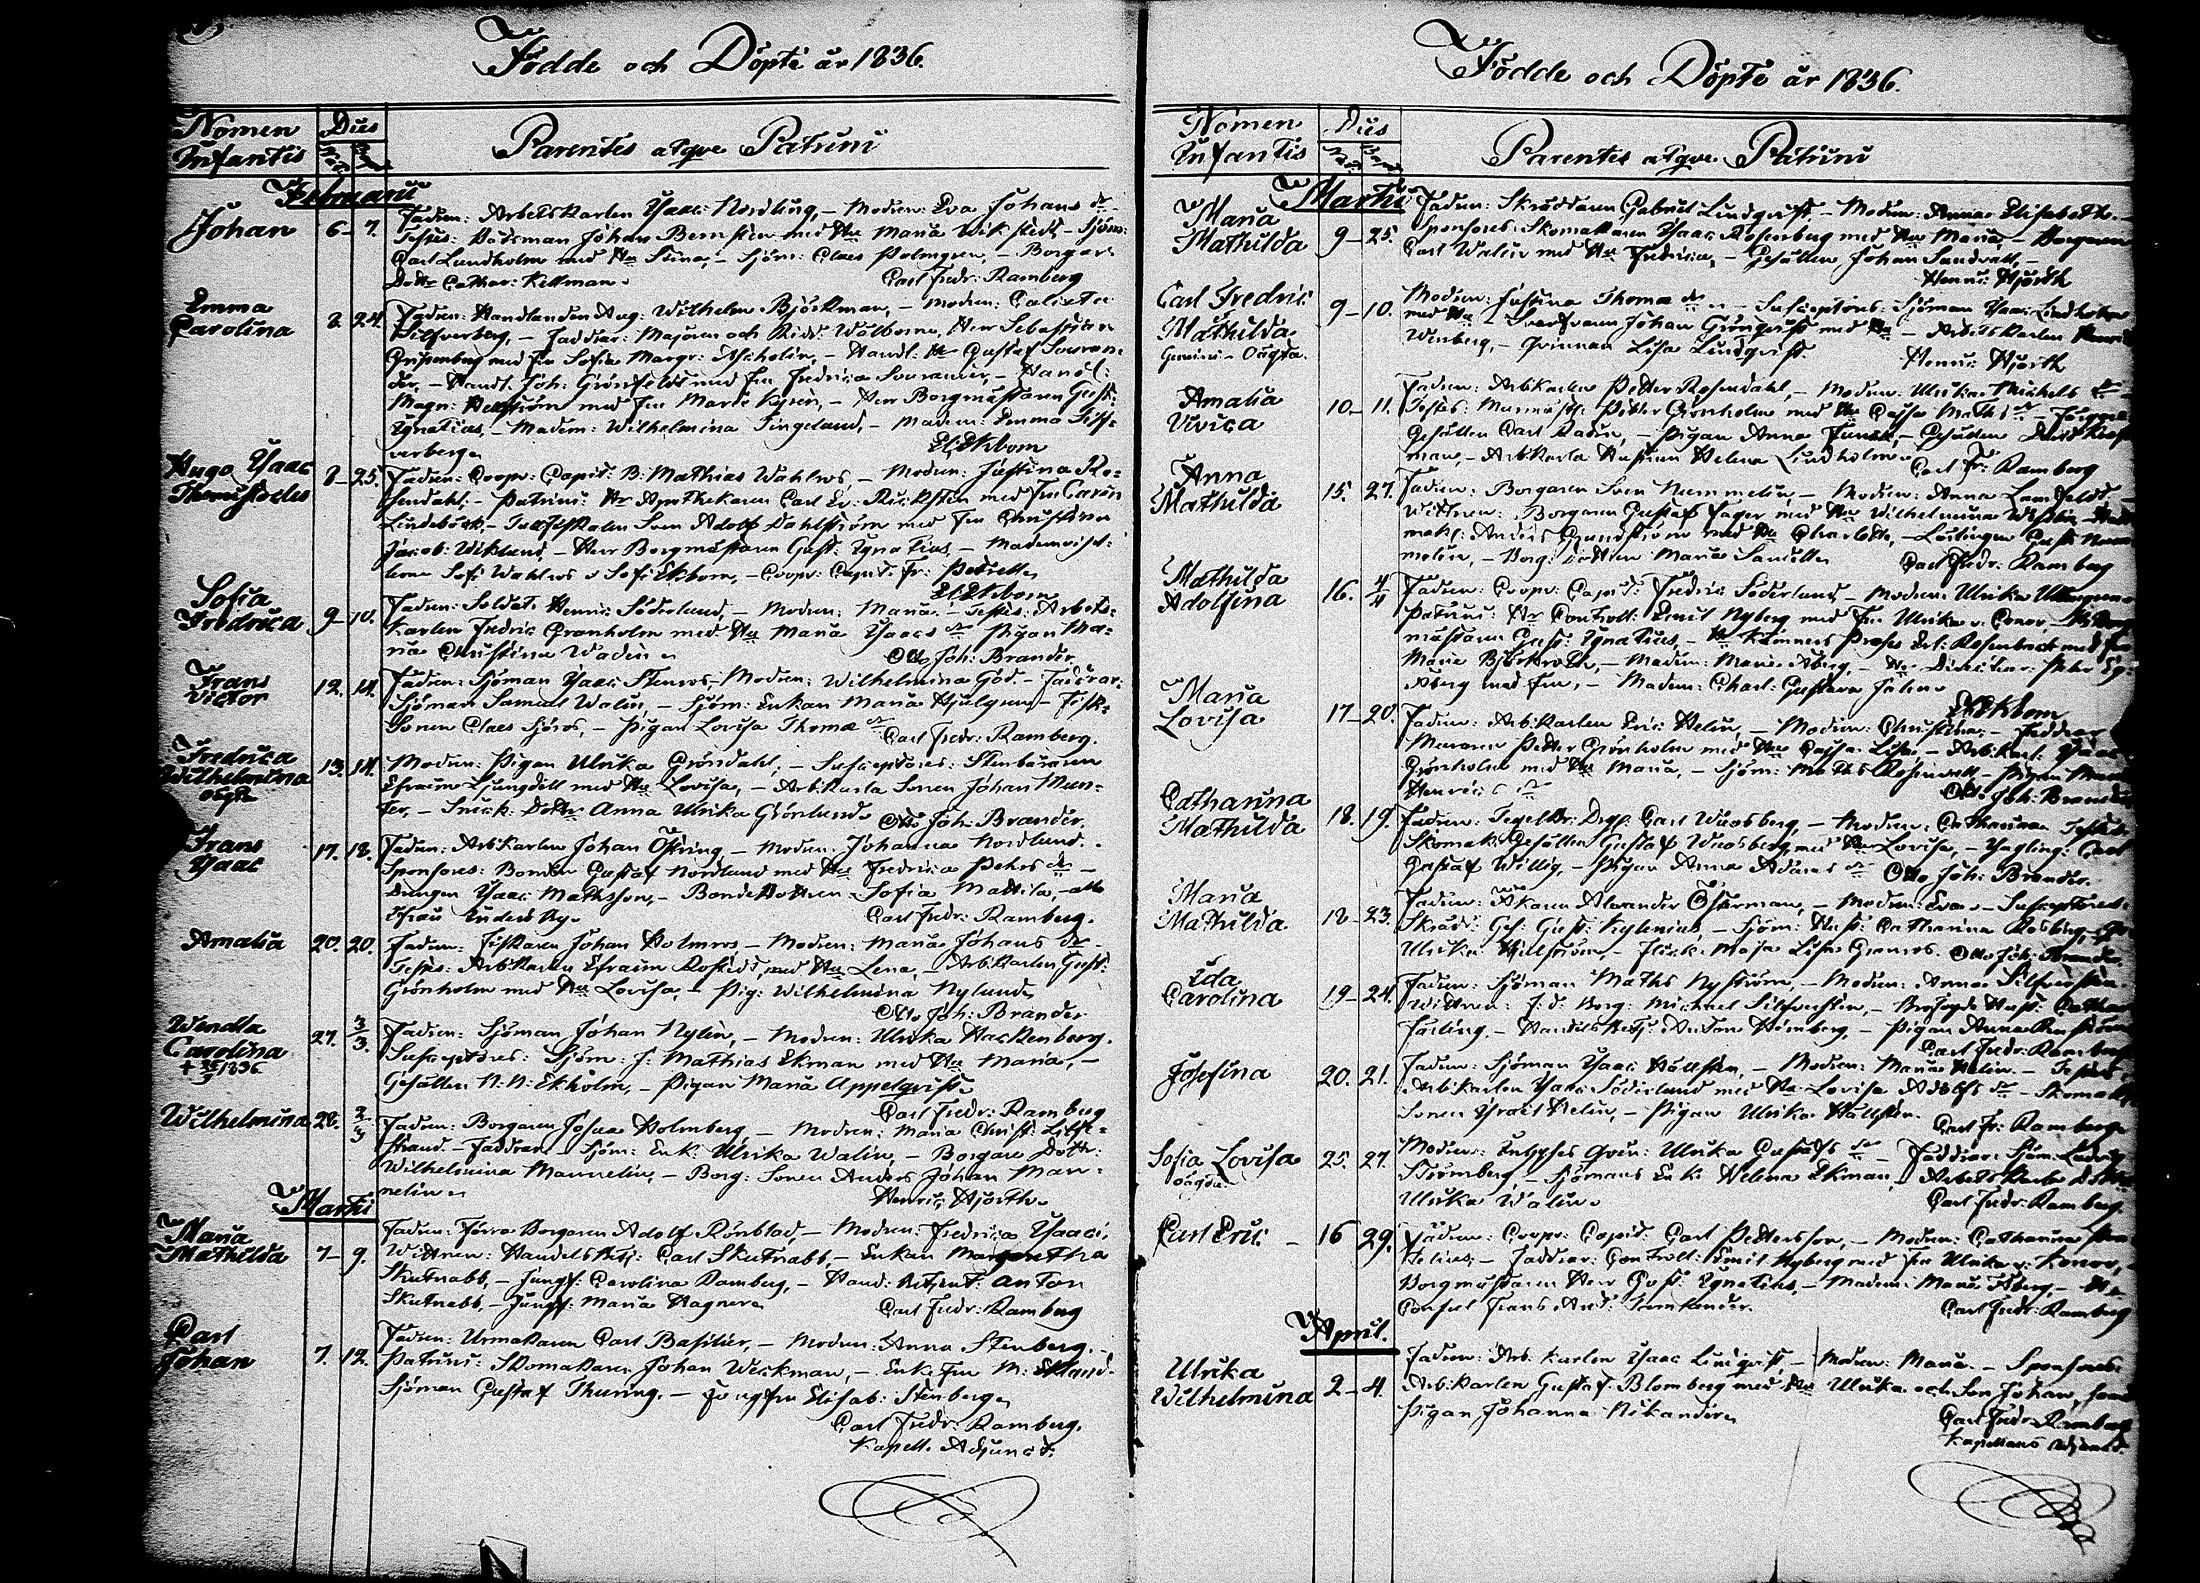 Födde och Döpte år 1836.
Nomen Infantis
Dies
Parentes atqve Patrini
Februarii
Johan 6– 7.
Fadren: Arbetskarlen Isaac Nordling, – Modren: Eva Johans dr
Testes: Båtsman Johan Bernsten med Hu Maria Wikstedt – Sjöm:
Carl Lundholm med Hu Stina, – Sjöm: Claes Palmgren, – Borgar
Dottr Cathar: Kellman.
Carl Fredr: Ramberg
Emma Carolina 8. 24.
Fadren: Handlanden Aug. Wilhelm Björkman, – Modren:
Silfverberg, – Faddrar: Majoren och Ridd: Herr Sebastian
Gripenberg med Fru Sofia Margr: – Handl: Hr Gustaf Souran-
der, – Handl. Joh: Grönfeldt med Fru Fredrica Sourander, – Handl:
Magn: Hellström med Fru Marie – Herr Borgmästaren Gust:
Ignatius, – Madem: Wilhelmina Tingelund, – Madem: Emma Silf-
verberg.
El: Ekbom
Hugo Isaac Themistocles 8–25.
Fadren: Coopr: Capit: B: Mathias Wahlros, – Modren: Justina Ro-
sendahl, – Patrini: Hr Apothekaren Carl Er: med Fru Carin
Lindebäck, – Sven Adolf Dahlström med Fru Christina
Jacob: Wiklund, – Herr Borgmästaren Gust: Ignatius, – Mademoisel-
lerne Sofi Wahlros o Sofi Ekbom, – Coopv: Capit: Fr: Petrell.
El: Ekbom
Sofia Fredrica 9–10.
Fadren: Soldat: Henric Söderlund, – Modren: Maria. – Testes: Arbets-
karlen Fredric Granholm med Hu Maria Isaacs dr Pigan Ma-
ria Christina Wadin.
Otto Joh: Brander.
Frans Victor 12. 14.
Fadren: Sjöman Isaac Stenros, – Modren: Wilhelmina God. – Faddrar:
Sjöman Samuel Walin, – Sjöm: Enkan Maria Hjulgren – Fisk:
Sonen Claes Sjöros, – Pigan Lovisa Thomæ dr
Carl Fredr: Ramberg.
Fredrica Wilhelmina oägta 13. 14.
Modren: Pigan Ulrika Gröndahl, – Susceptores: Stenbäraren
Efraim Ljungdell med Hu Lovisa, – Arbkarls Sonen Johan Mun-
ter, – Snick: Dottr Anna Ulrika Grönlund.
Otto Joh: Brander.
Frans Isaac 17. 18.
Fadren: Arbkarlen Johan Öhring – Modren: Johanna Nordlund.
Sponsores: Bonden Gustaf Nordlund med Hu Fredrica Peters dr –
Drengen Isaac Mathsson, – Bondedottren Sofia Mattila, – alla
ifrån
Carl Fredr: Ramberg.
Amalia 20. 20.
Fadren: Fiskaren Johan Holmros – Modren: Maria Johans dr
Testes: Arbkarlen Efraim Rostedt, med Hu Lena, – Arbkarlen Gust:
Grönholm med Hu Lovisa, – Pig: Wilhelmina Nylund.
Otto Joh: Brander
Wendla Carolina 27. 3/3.
Fadren: Sjöman Johan Nylin, – Modren: Ulrika Hackenberg.
Susceptores: Sjöm: J: Mathias Ekman med Hu Maria, –
Gesällen N: N: Ekholm, – Pigan Maria Appelqvist.
Carl Fredr: Ramberg
Wilhelmina 28. 2/3
Fadren: Borgaren Josua Holmberg – Modren: Maria Christ: Lille-
strand. – Faddrar: Sjöm: Enk: Ulrika Walin, – Borgare Dottr:
Wilhelmina Mannelin, – Borg: Sonen Anders Johan Man-
nelin.
Henric Hjorth.
Martii
Maria Mathilda 7– 9.
Fadren: Förre Borgaren Adolf Rönblad, – Modren: Fredrica Isaacs.
Wittnen: Handelsbetj: Carl Skutnabb, – Enkan Margaretha
Skutnabb, – Jungf: Carolina Ramberg, – Hand: Betjent: Anton
Skutnabb, – Jungf: Maria Hagner.
Carl Fredr: Ramberg
Carl Johan 7. 12.
Fadren: Urmakaren Carl Basilier, – Modren: Anna Stenberg.
Patrini: Skomakaren Johan Weckman, – Enk: Fru M: Ekland.
Sjöman Gustaf Thuring. – Jungfru Elisab: Stenberg.
Carl Fredr: Ramberg.
Kapell. Adjunct.
Födde och Döpte år 1836.
Nomen Infantis
Dies
Parentes atqve Patrini
Martii
Maria Mathilda 9–25.
Fadren: Skräddaren Gabriel Lindqvist – Modren: Anna Elisabeth. –
Sponsores: Skomakaren Isaac Rosenberg med Hu Maria, – Borgaren
Carl Walin med Hu Fredrica, – Gesällen Johan Sandvall, –
Henric Hjorth
Carl Fredric
Mathilda
Gemini – Oägta. 9–10.
Modren: Justina Thomæ dr – Susceptores: Sjöman Isaac Lindholm
med Hu – Svarfvaren Johan Grönqvist med Hu – Arbetskarlen Henric
Wenberg, – Qvinnan Lisa Lindqvist.
Henric Hjorth
Amalia Vivica 10– 11.
Fadren: Arbkarlen Petter Rosendahl, – Modren: Ulrika Michels dr
Testes: Murmäst: Petter Grönholm med Hu Cajsa Maths dr –
Gesällen Carl Wadin, – Pigan Anna – Gesällen
man, – Arbkarls Hustrun Helena Lindholm.
Carl Fr: Ramberg
Anna Mathilda 15. 27.
Fadren: Borgaren Sven Nummelin, – Modren: Anna Lamfeldt –
Wittnen: Borgaren Gustaf Fager med Hu Wilhelmina
Anders Grundström med Hu Charlotte, – Lärlingen Gust: Num-
melin, – Borg: Dottren Maria Sanell.
Carl Fredr: Ramberg
Mathilda Adolfina 16. 4/4
Fadren: Coopv: Capit: Fredric Söderlund – Modren: Ulrika
Patrini: Hr Controll: Emil Nyberg med Fru Ulrika v: Conov –
mästaren Gust: Ignatius, –
Maria Björkroth, – Madem: Maria Åberg, –
Åberg med Fru, – Madem: Charl: Gustava
El: Ekbom
Maria Lovisa 17–20.
Fadren: Arbkarlen Eric Helin, – Modren: Christina. – Faddrar
Muraren Petter Grönholm med Hu Cajsa Lisa – Arbkarl:
Grönholm med Hu Maria, – Sjöm: Maths Rosenvall – Pigan
Henrics dr
Otto Joh: Brander
Catharina Mathilda 18. 19.
Fadren: Carl Wuosberg, – Modren: Catharina.
Skomak: Gesällen Gustaf Wuosberg med Hu Lovisa, – Yngling: Carl
Gustaf Willig, – Pigan Anna Adams dr
Otto Joh: Brander.
Maria Mathilda 18–23.
Fadren: Åkaren Alexander Österman, – Modren: Eva. – Susceptores:
Skrädd: Ges: Gust: – Sjöm: Hust: Catharina Rosberg,
Ulrika Hellström, – Flick: Maja Lisa Granros.
Otto Joh: Brander.
Ida Carolina 19–24.
Fadren: Sjöman Maths Nyström, – Modren: Anna Silfversten.
Wittnen: F.d. Borg: Michael Silfversten, – Hust:
Färling, – Handelsbetj: Anton Heimberg, – Pigan Anna
Carl Fredr: Ramberg
Josefina 20. 21.
Fadren: Sjöman Isaac Hällsten, – Modren: Maria Helin. – Testes:
Arbkarlen Isaac Söderlund med Hu Lovisa Adolfs dr –
Sonen Israel Helin, – Pigan Ulrika Hällsten.
Carl Fr: Ramberg.
Sofia Lovisa
oägta 25. 27.
Modren: Inhyses Qvin: Ulrika Gustafs dr – Faddrar: Sjöm: Ludvig
Strömberg, – Sjömans Enk: Helena Ekman, – Arbetskarls Dottren
Ulrika Walin.
Carl Fredr: Ramberg.
Carl Eric – 16 29.
Fadren: Coopv: Capit: Carl Pettersson, – Modren: Catharina
Helius, – Faddrar: Controll: Emil Nyberg med Fru Ulrika v: Konov, –
Borgmästaren Herr Gust: Ignatius, – Madem: Maria Åberg, – Hr
Consul Frans And:
Carl Fredr: Ramberg
April.
Ulrika Wilhelmina 2–4.
Fadren: Arb. Karlen Isaac Lindqvist – Modren: Maria. – Sponsores:
Arbkarlen Gustaf Blomberg med Hu Ulrika och Son Johan, samt
Pigan Johanna Nikander.
Carl Fredr: Ramberg
Kapellans Adjunct.